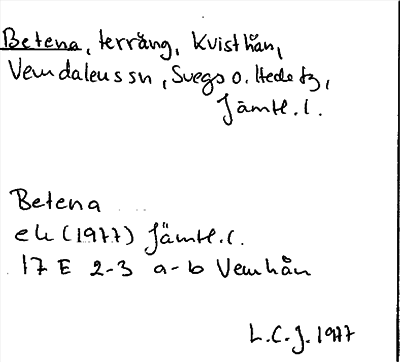 Betena, terräng, Kvisthån,
Vemdalens sn, Svegs o. Hede tg,
Jämtl. l.
Betena
ek (1977) Jämtl. l.
17 E 2-3 a-b Vemhån
L.C.J. 1977